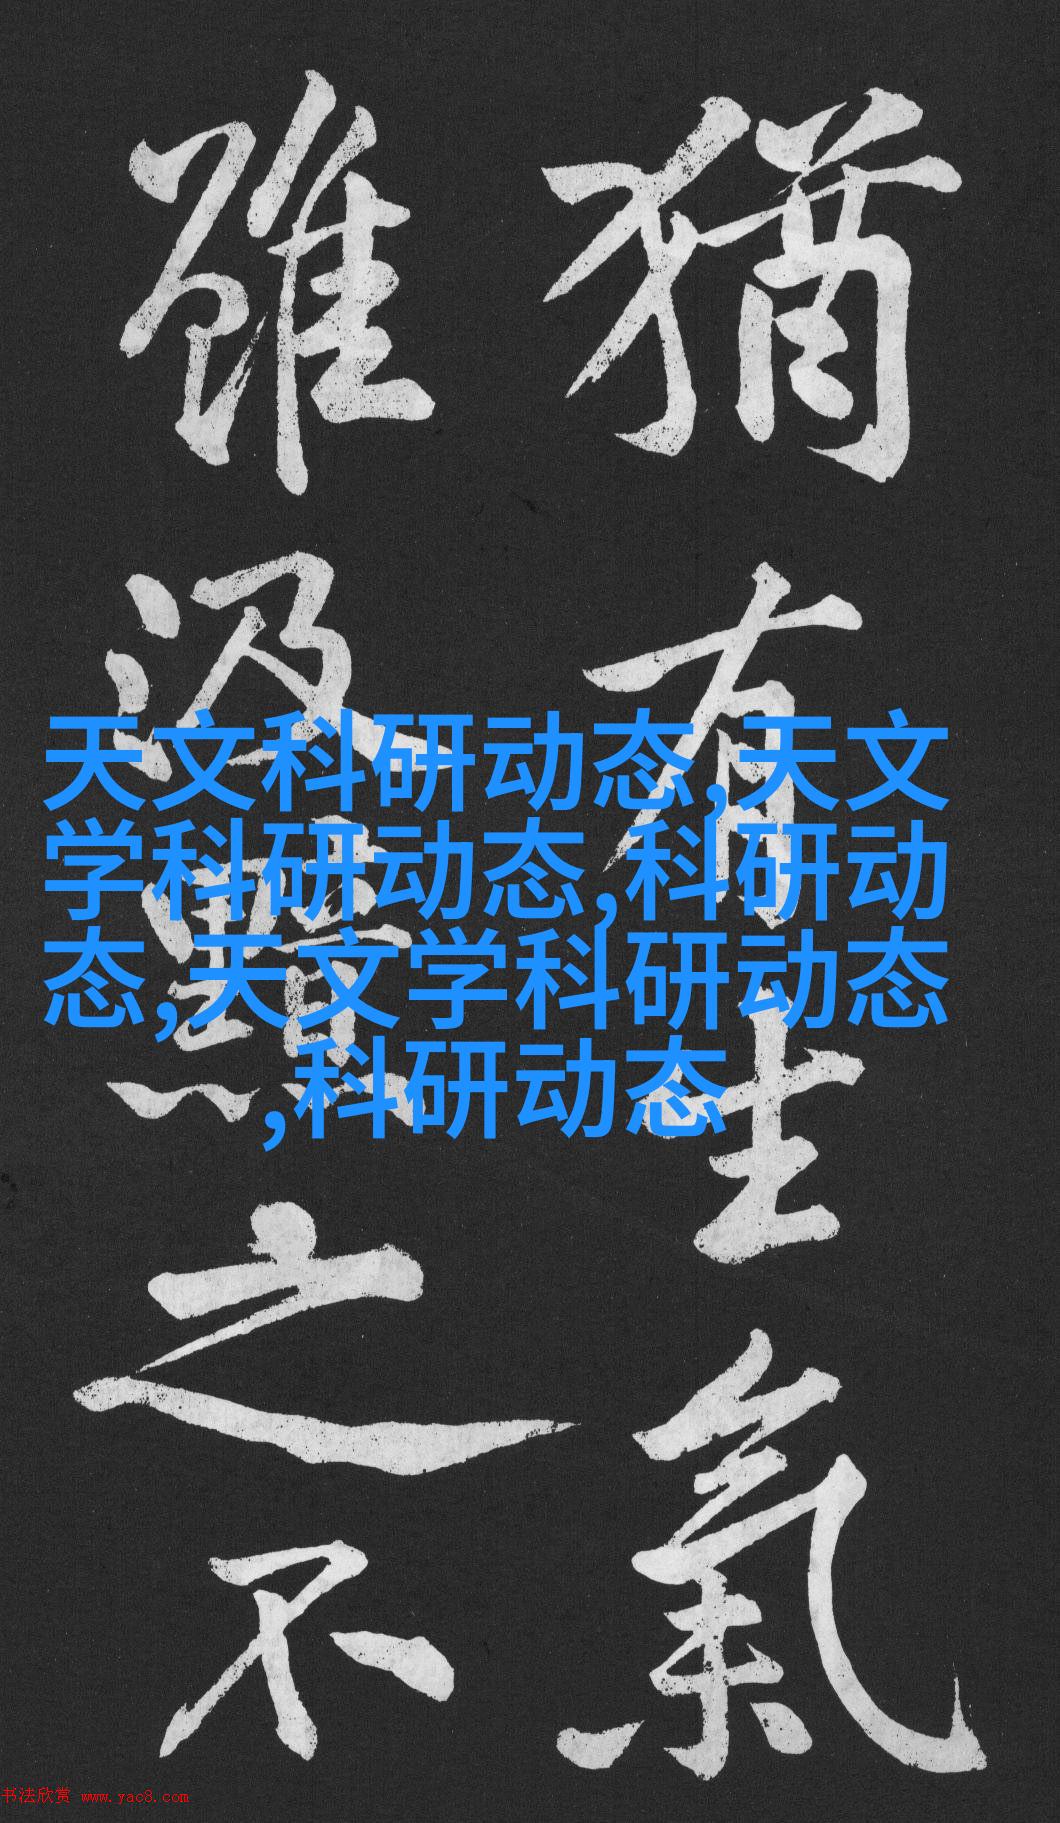 猶有生氣
雖汲黯之不
天文科研动态,天文
学科研动态,科研动
态,天文学科研动态
,科研动态
书法欣赏 www.yac8.com